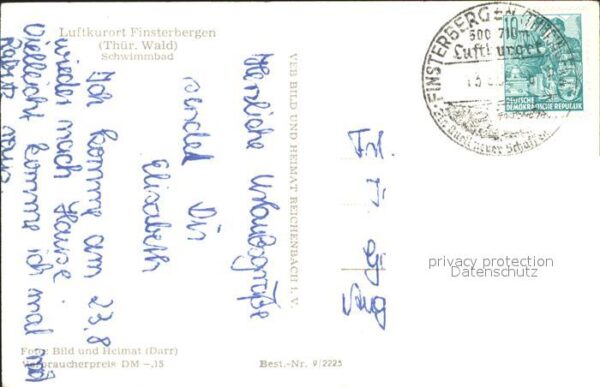 Luftkurort Finsterbergen
(Thür. Wald)
Schwimmbad
Herzliche Urlaubsgrüße
sendet Dir
Elisabeth
Ich komme am 23.8
wieder nach Hause.
Vielleicht komme ich mal mit
VEB BILD UND HEIMAT REICHENBACH i. V.
Frl.
FINSTERBERGEN (THÜR.
500-710m
Luftkurort
10
DEUTSCHE
DEMOKRATISCHE REPUBLIK
privacy protection
Datenschutz
Foto: Bild und Heimat (Darr)
Verbraucherpreis DM –,15
Best.-Nr. 9/2225